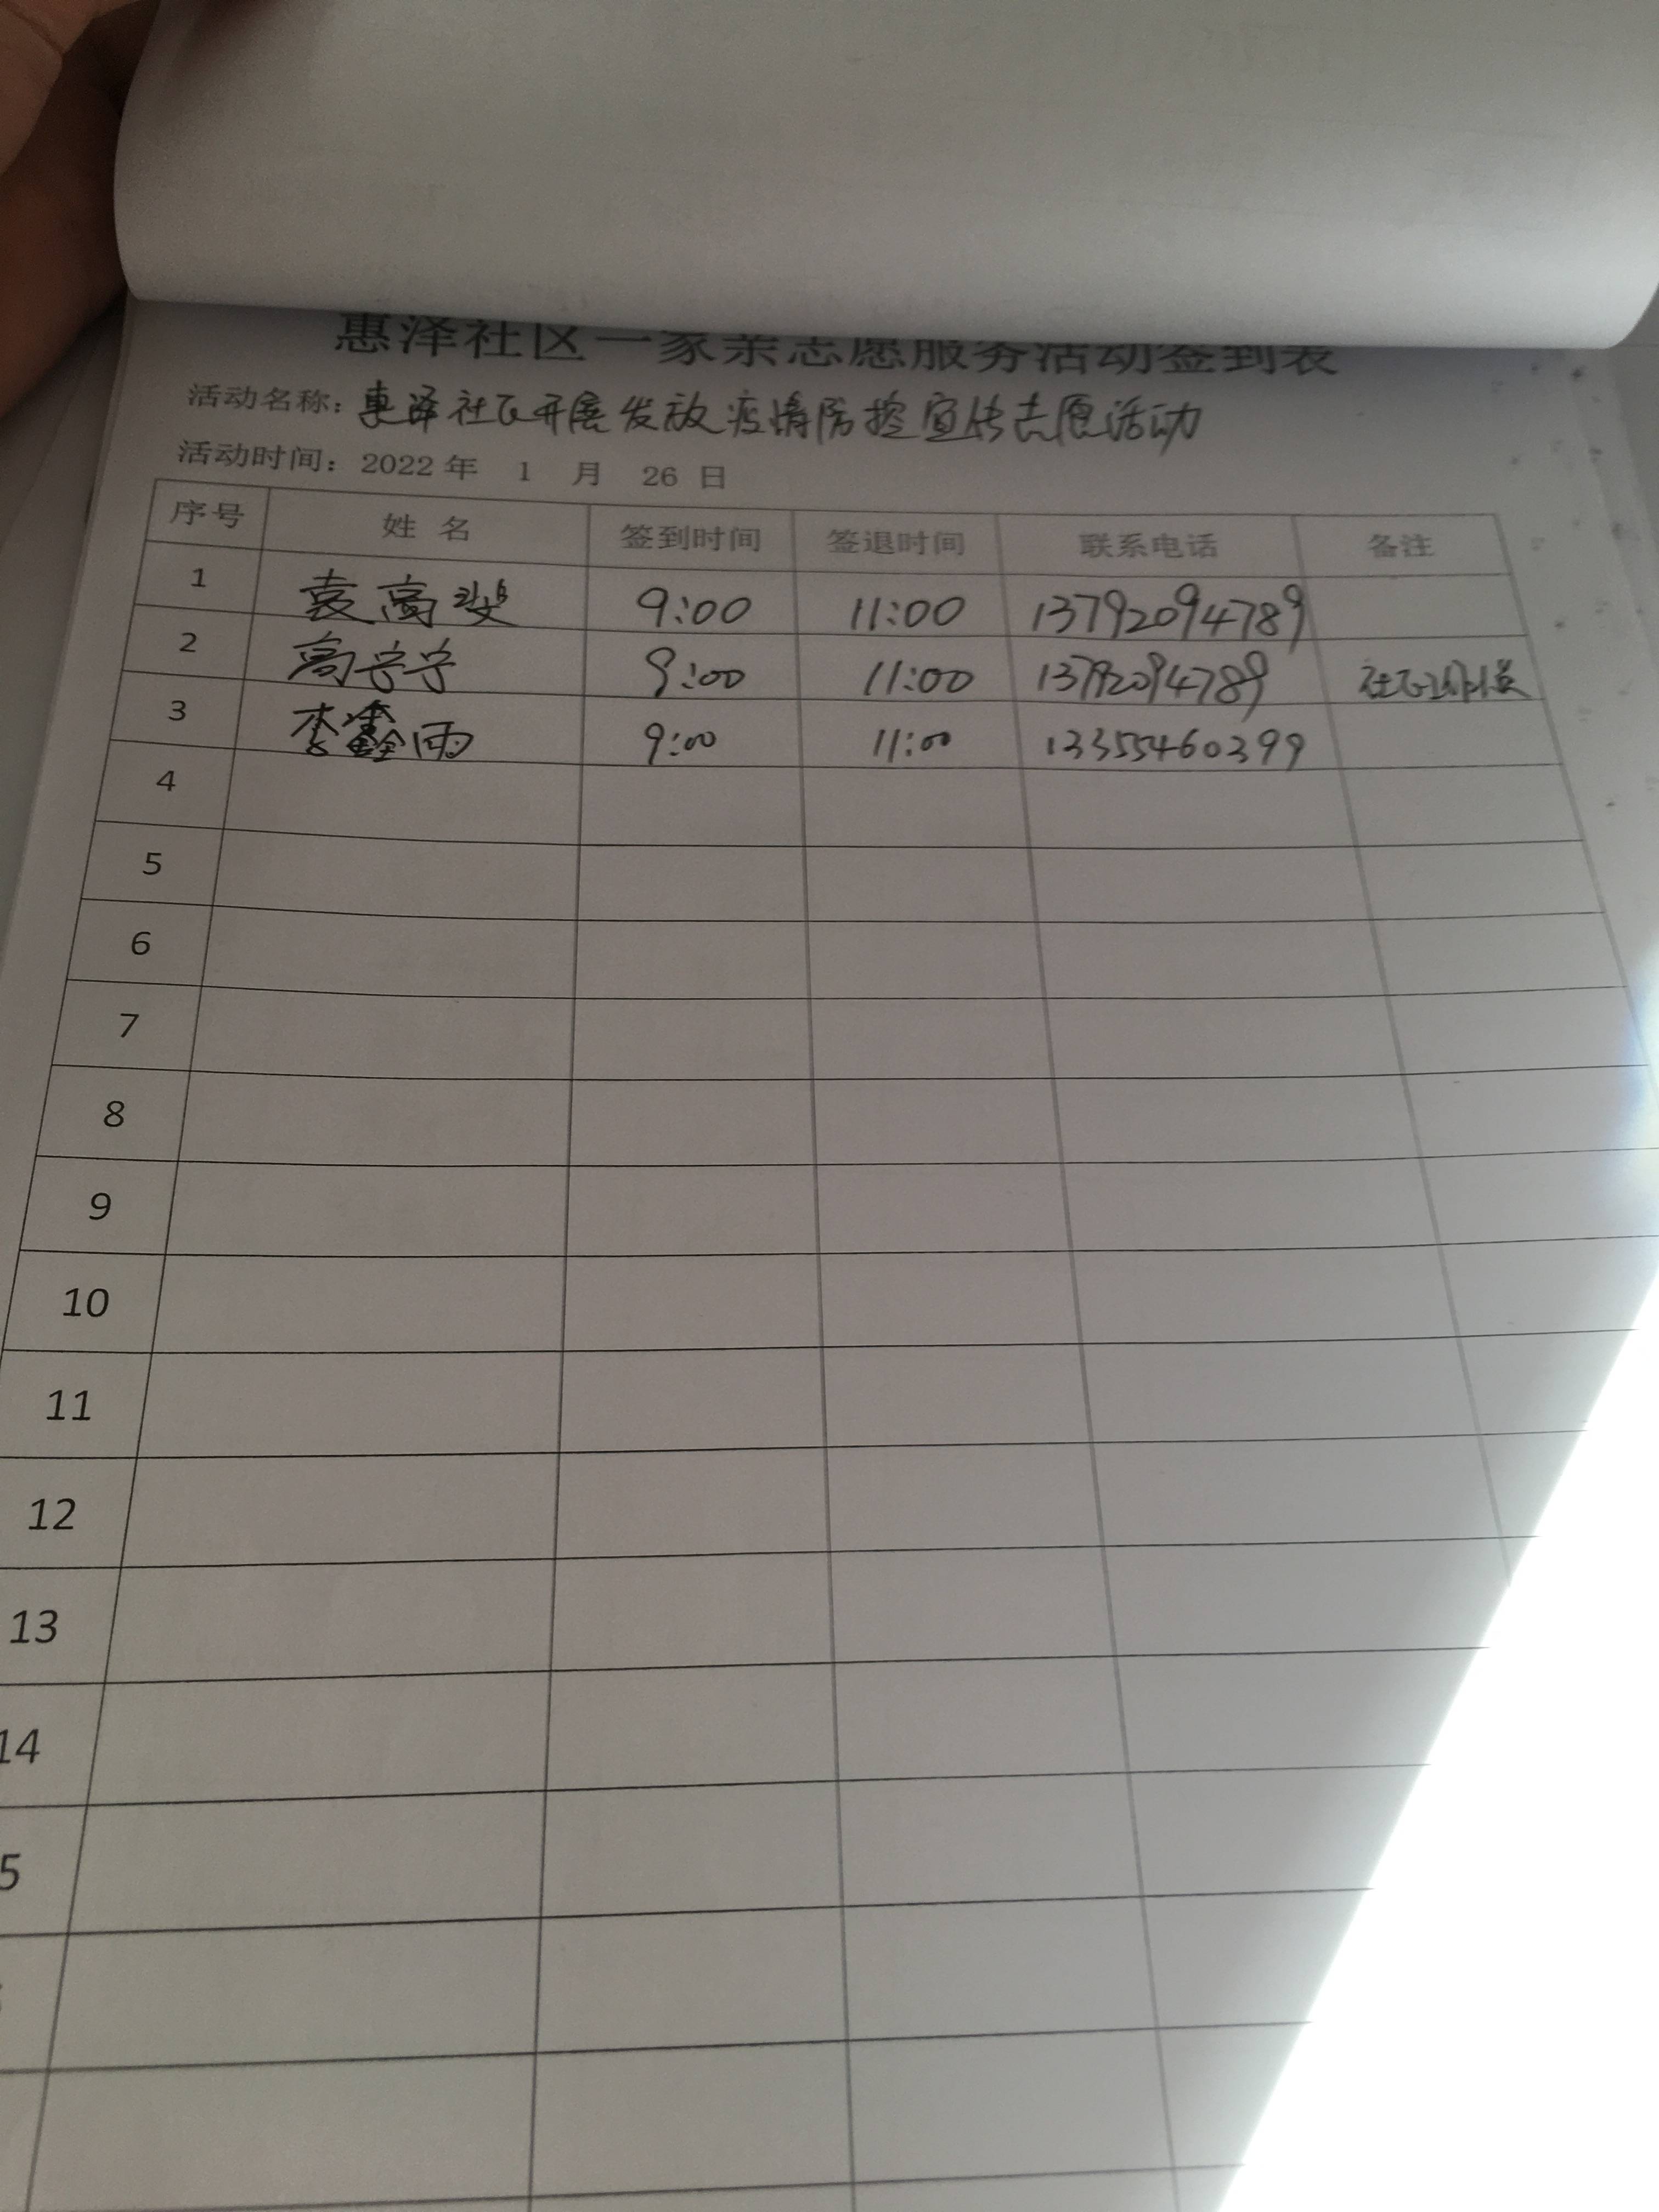 惠泽社区一家亲志愿服务活动签到表
活动名称：惠泽社区开展发放疫情防控宣传志愿活动
活动时间：2022 年 1 月 26 日
序号 姓 名 签到时间 签退时间 联系电话 备注
1 袁高斐 9:00 11:00 13792094789
2 高宁宁 9:00 11:00 13792094789
3 李鑫雨 9:00 11:00 13355460399
4
5
6
7
8
9
10
11
12
13
14
5